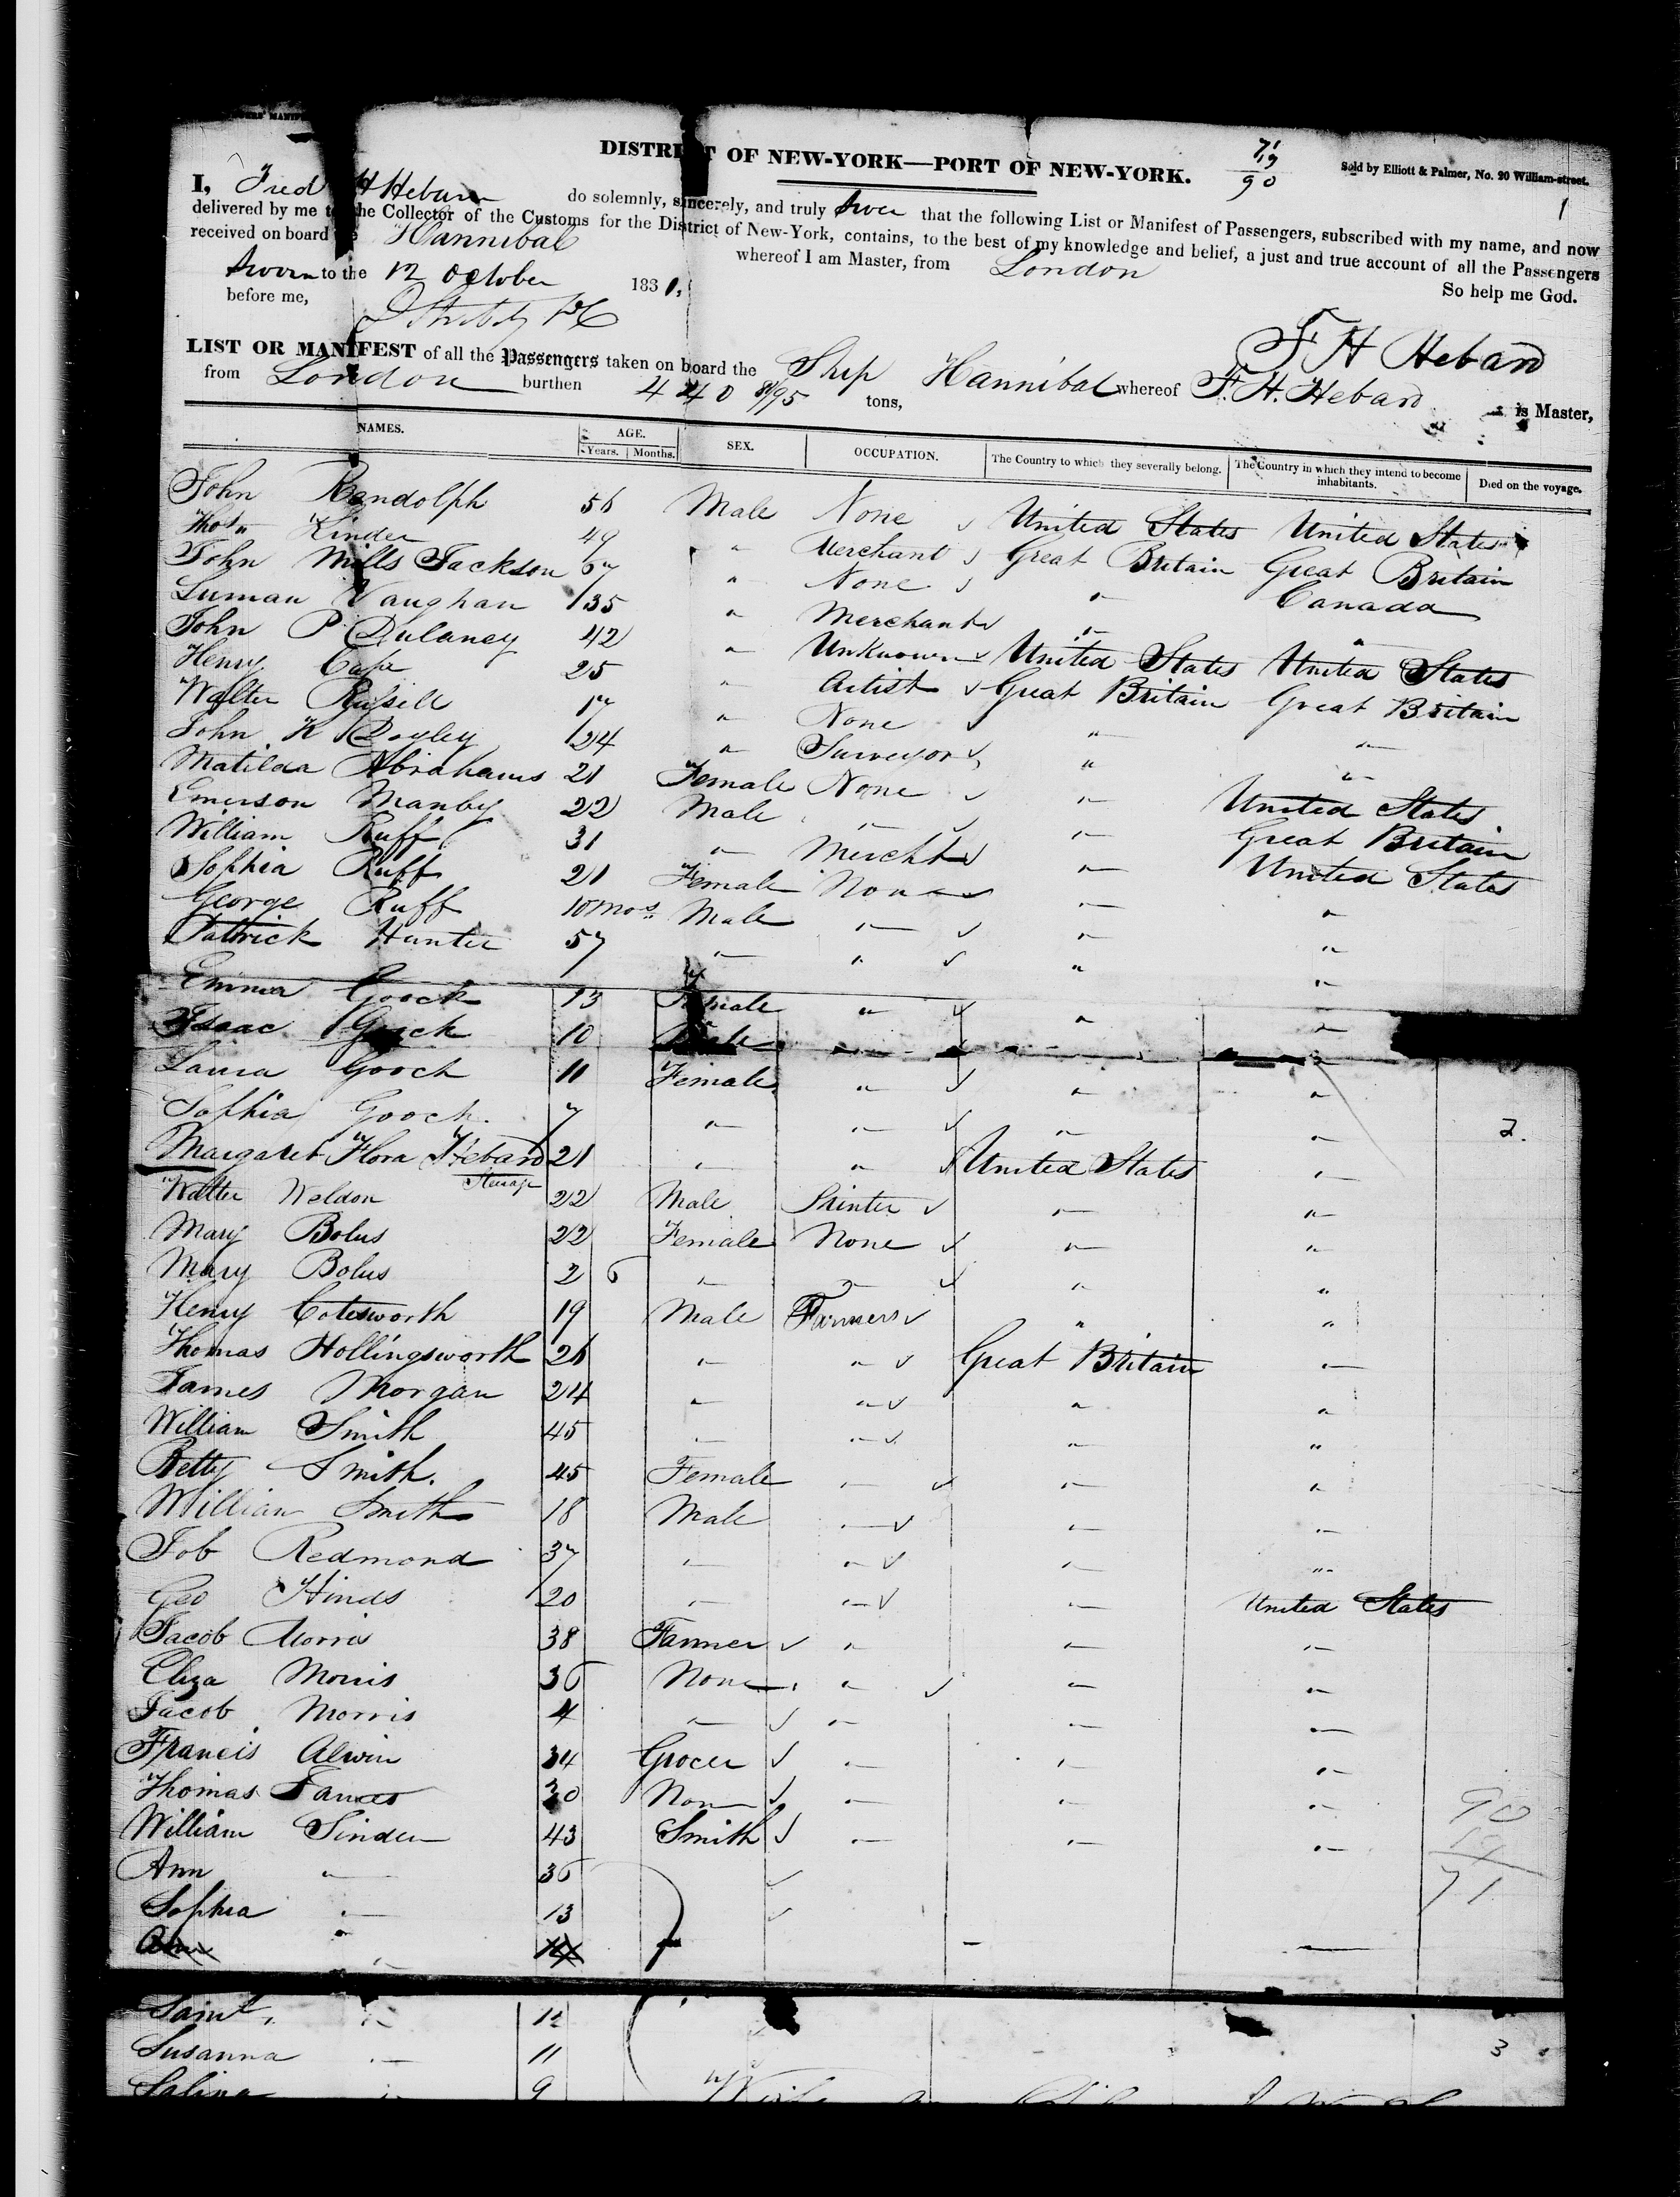 DISTRICT OF NEW-YORK—PORT OF NEW-YORK.
71
19
90
Sold by Elliott & Palmer, No. 20 William-street.
1
I, Fred H Hebard do solemnly, sincerely, and truly swear that the following List or Manifest of Passengers, subscribed with my name, and now
delivered by me to the Collector of the Customs for the District of New-York, contains, to the best of my knowledge and belief, a just and true account of all the Passengers
received on board the Hannibal whereof I am Master, from London
Sworn to the 12 October 1830, So help me God.
before me,
F H Hebard
LIST OR MANIFEST of all the Passengers taken on board the Ship Hannibal whereof F. H. Hebard is Master,
from London burthen 440 8/95 tons,
NAMES. AGE. SEX. OCCUPATION. The Country to which they severally belong. The Country in which they intend to become inhabitants. Died on the voyage.
Years. Months.
John Randolph 56 Male None United States United States
Thos Kinder 49 " Merchant Great Britain Great Britain
John Mills Jackson 67 " None " Canada
Luman Vaughan 35 " Merchant " "
John P Dulaney 42 " Unknown United States United States
Henry 25 " Artist Great Britain Great Britain
Walter Russell 17 " None " "
John K Dogley 24 " Surveyor " "
Matilda Abrahams 21 Female None " United States
Emerson Manby 22 Male " " Great Britain
William Ruff 31 " Mercht " United States
Sophia Ruff 21 Female None " "
George Ruff 10 mos Male " " "
Patrick Hunter 57 " " " "
Emma Gooch 13 Female " " "
Isaac Gooch 10 Male " " "
Laura Gooch 11 Female " " "
Sophia Gooch 7 " " " "
2.
Margaret Flora Hebard 21 " " United States "
Steerage
Walter Weldon 22 Male Printer " "
Mary Bolus 22 Female None " "
Mary Bolus 2 6 " " " "
Henry Cotesworth 19 Male Farmers " "
Thomas Hollingsworth 26 " " Great Britain "
James Morgan 24 " " " "
William Smith 45 " " " "
Betty Smith. 45 Female " " "
William Smith 18 Male " " "
Job Redmond 37 " " " "
Geo Hinds 20 " " " United States
Jacob Morris 38 Farmer " " "
Eliza Morris 36 None " " "
Jacob Morris 4 " " " "
Francis Alwin 34 Grocer " " "
Thomas James 30 None " " "
William Sinden 43 Smith " " "
90
19
71
Ann " 36
Sophia " 13
Ann "
Saml " 12
Susanna " 11
3
Salina " 9